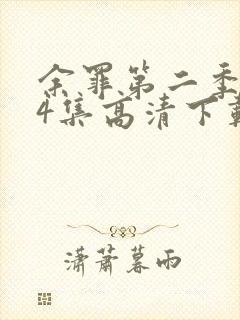 余罪第二季
4集高清下载
潇萧暮雨